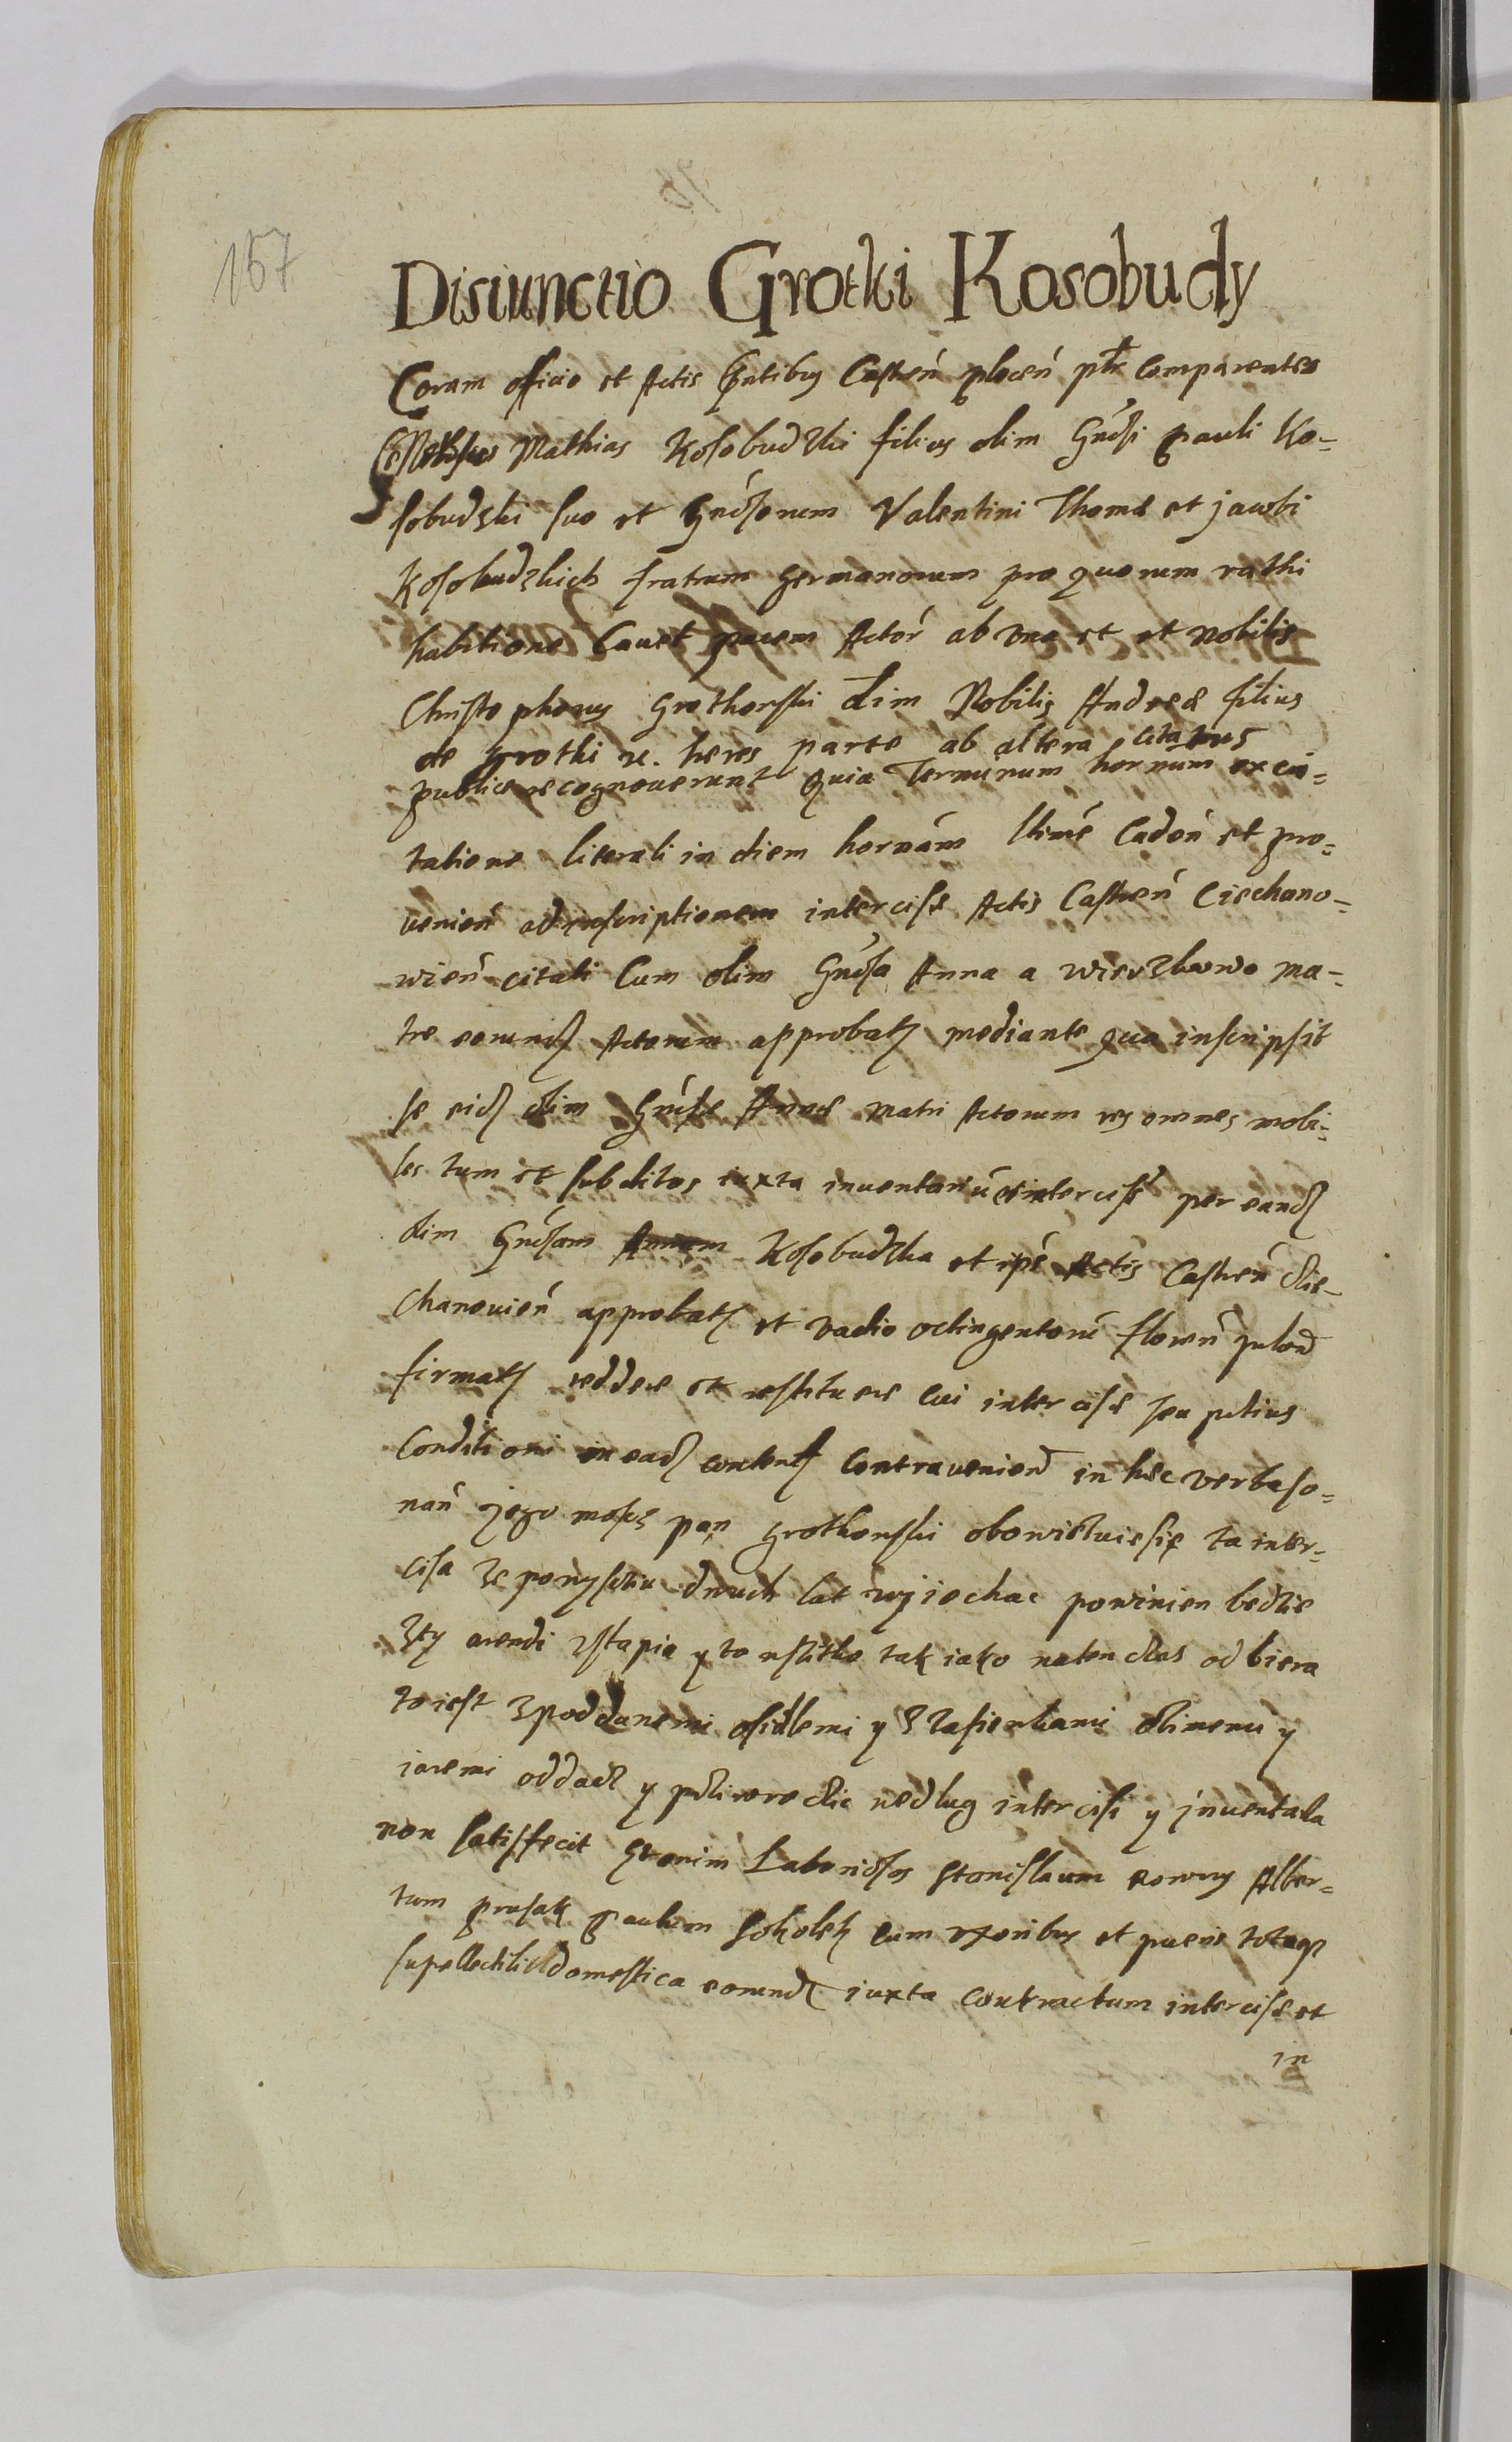 157
Disiunctio Grotki Kosobudy
Coram officio et Actis Castreń płoceń comparentes
Mathias Kosobudzki filius olim Gńdsi Pauli Ko-
sobudzki suo et Gńdsorum Valentini Thomæ et jacobi
Kosobudzkich fratrum germanorum pro quorum rathi
habitione cauet Actor ab vna et et Nobilis
Christophorus Grothowski olim Nobilis Andreæ filius
de Grotki heres parte ab altera citatus
publice recognouerunt quia Terminum hornum ex ci=
tatione literali in diem horńam Caden et pro=
uenień ad inscriptionem intercisæ Actis Castreń Ciechano=
wień citati cum olim Gńdsa Anna a wierzbowo ma-
tre eorund Actorum approbat mediante qua inscripsit
se eid olim Gńdsæ Annæ matri Actorum res omnes mobi=
les tum et subditos iuxta inuentariu intercisæ per eand
olim Gńdsam Kosobudzka et Actis Castreń Cie-
chanouień approbat et vadio octingentoru floreń polon
firmat reddere et restituere cui intercisæ seu potius
Conditioni in ead content contrauenien in hæc verba so=
nań jego mosc pan Grothowski obowiezuie się ta inter-
cisa ze po dwuch lat wyiechac powinien bedzie
zty arendi vstapic y to tak iako naten czas odbiera
to iest z poddanemi osiadlemi y zimemi y
iaremi oddac y nedlug intercisi y jnuentaza
non satisfecit Laboriosos Stanislaum Alber=
tum prusak paulum Sokolek cum vxoribus et pueris totaq
supellectili domestica eorund iuxta contractum intercisæ et
in